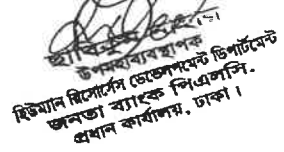 উপমহাব্যবস্থাপক
হিউম্যান রিসোর্সেস ডেভেলপমেন্ট ডিপার্টমেন্ট
জনতা ব্যাংক পিএলসি.
প্রধান কার্যালয়, ঢাকা।